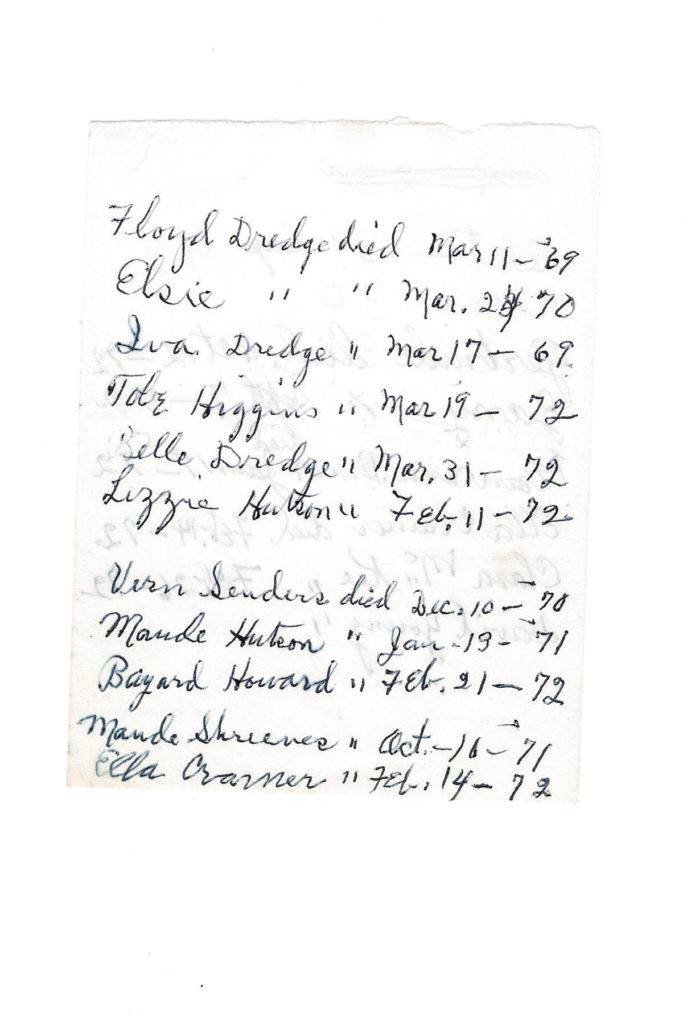 Floyd Dredge died Mar 11 – '69
Elsie " " Mar. 70
Iva Dredge " Mar 17 – 69.
Tobe Higgins " Mar 19 – 72
Belle Dredge " Mar. 31 – 72
Lizzie Hutson " Feb. 11 – 72
Vern Senders died Dec. 10 – '70
Maude Hutson " Jan – 13 – '71
Bayard Howard " Feb. 21 – 72
Maude Shreeves " Oct. – – '71
Ella Cramer " Feb. 14 – 72